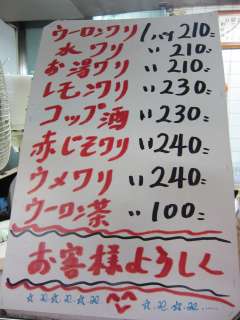 ウーロンワリ 1パイ 210-
水ワリ 〃 210-
お湯ワリ 〃 210-
レモンワリ 〃 230-
コップ酒 〃 230-
赤じそワリ 〃 240-
ウメワリ 〃 240-
ウーロン茶 〃 100-
お客様よろしく